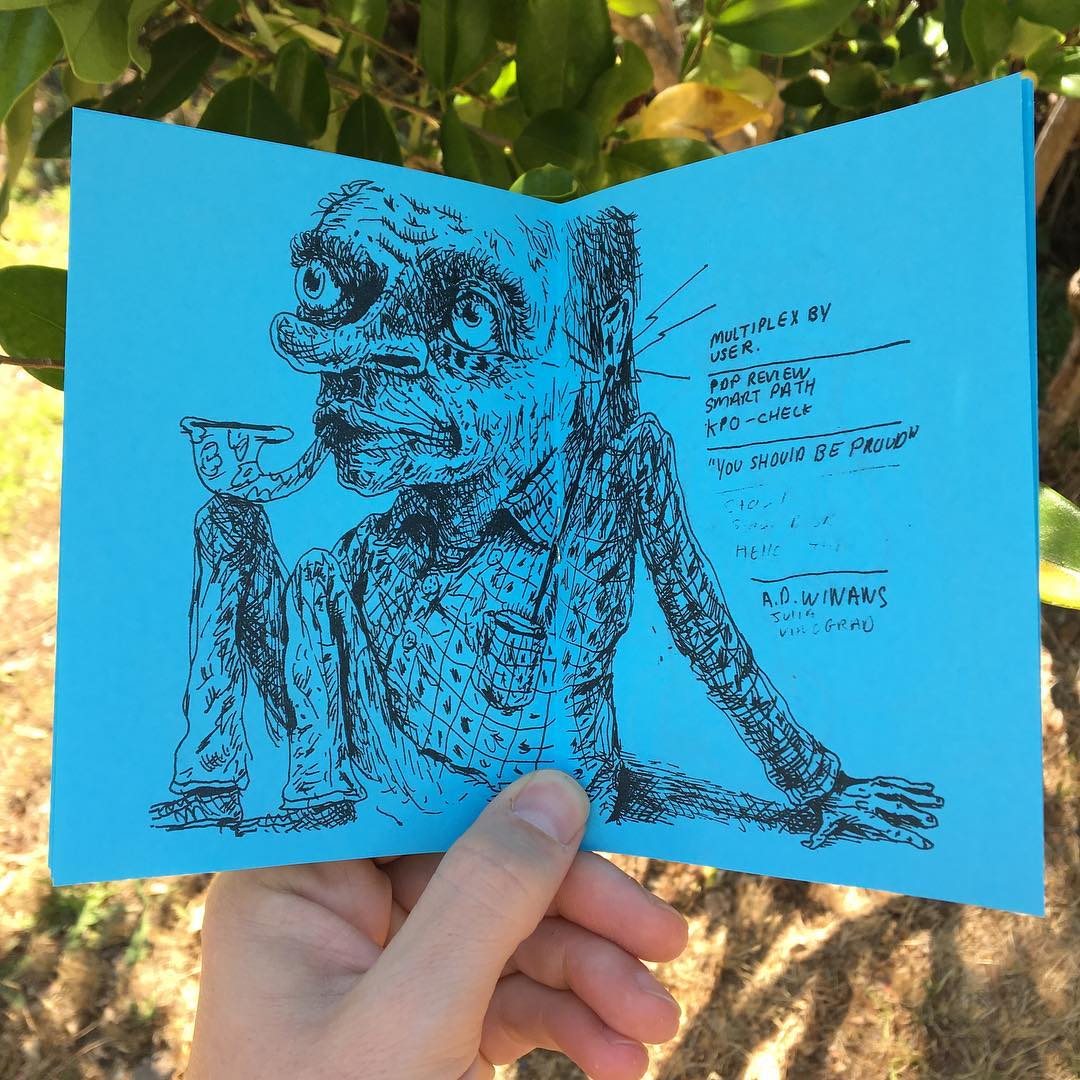 MULTIPLEX BY
USER.
PDP REVIEW
SMART PATH
KPO-CHECK
"YOU SHOULD BE PROUD"
A.D. WINANS
JULIA
VINOGRAD